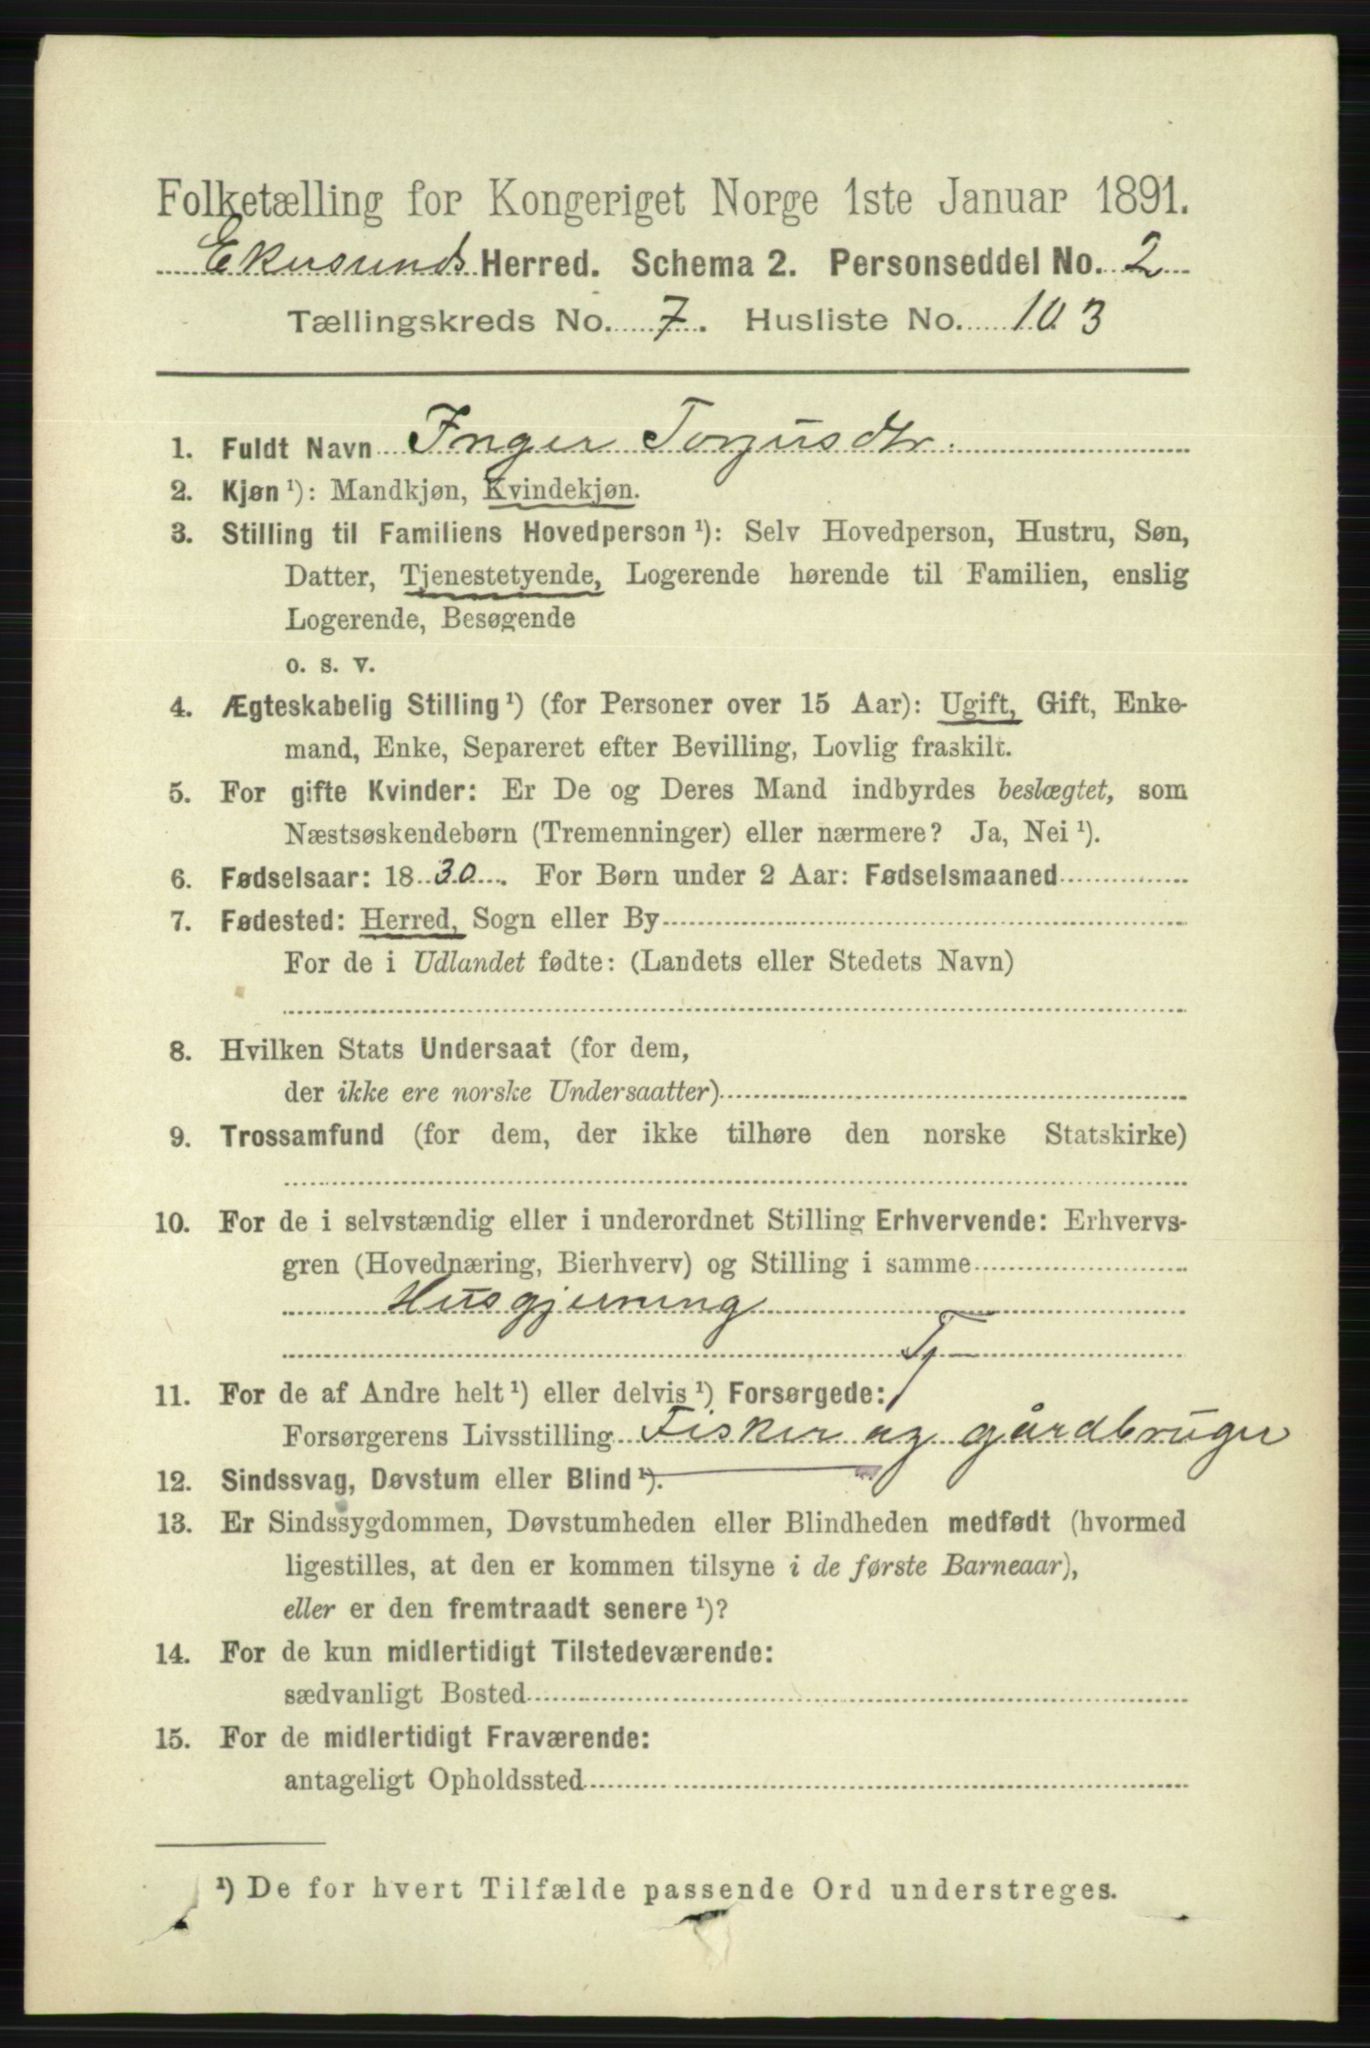 Folketælling for Kongeriget Norge 1ste Januar 1891.
Ekersunds Herred. Schema 2. Personseddel No. 2
Tællingskreds No. 7. Husliste No. 103
1. Fuldt Navn Inger Torjusdtr.
2. Kjøn ¹): Mandkjøn, Kvindekjøn.
3. Stilling til Familiens Hovedperson ¹): Selv Hovedperson, Hustru, Søn,
Datter, Tjenestetyende, Logerende hørende til Familien, enslig
Logerende, Besøgende
o. s. v.
4. Ægteskabelig Stilling ¹) (for Personer over 15 Aar): Ugift, Gift, Enke-
mand, Enke, Separeret efter Bevilling, Lovlig fraskilt.
5. For gifte Kvinder: Er De og Deres Mand indbyrdes beslægtet, som
Næstsøskendebørn (Tremenninger) eller nærmere? Ja, Nei ¹).
6. Fødselsaar: 18 30. For Børn under 2 Aar: Fødselsmaaned
7. Fødested: Herred, Sogn eller By
For de i Udlandet fødte: (Landets eller Stedets Navn)
8. Hvilken Stats Undersaat (for dem,
der ikke ere norske Undersaatter)
9. Trossamfund (for dem, der ikke tilhøre den norske Statskirke)
10. For de i selvstændig eller i underordnet Stilling Erhvervende: Erhvervs-
gren (Hovednæring, Bierhverv) og Stilling i samme
Husgjerning
Tj
11. For de af Andre helt ¹) eller delvis ¹) Forsørgede:
Forsørgerens Livsstilling Fisker og gårdbruger
12. Sindssvag, Døvstum eller Blind ¹).
13. Er Sindssygdommen, Døvstumheden eller Blindheden medfødt (hvormed
ligestilles, at den er kommen tilsyne i de første Barneaar),
eller er den fremtraadt senere ¹)?
14. For de kun midlertidigt Tilstedeværende:
sædvanligt Bosted
15. For de midlertidigt Fraværende:
antageligt Opholdssted
¹) De for hvert Tilfælde passende Ord understreges.